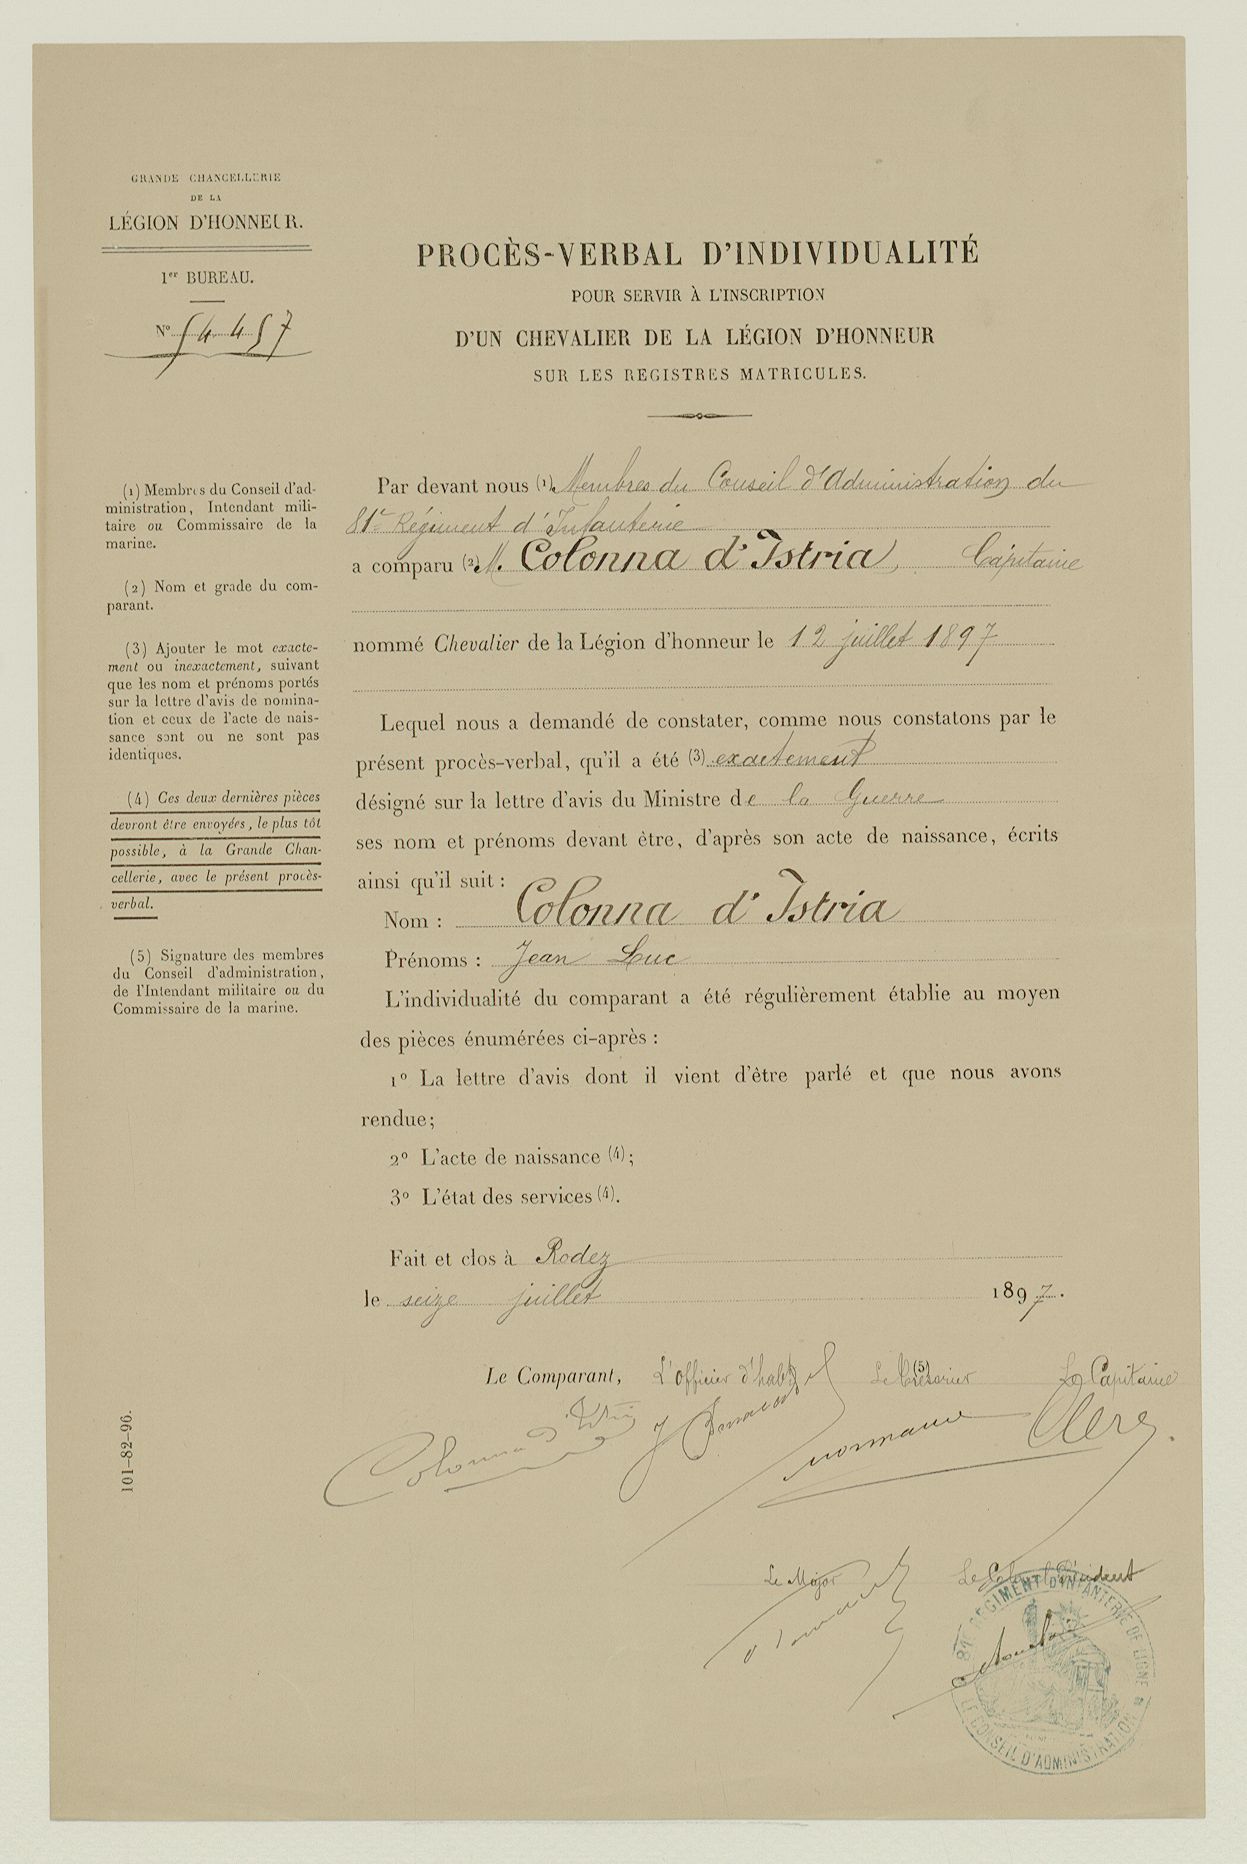 GRANDE CHANCELLERIE
DE LA
LÉGION D'HONNEUR.
1er BUREAU.
N° 54457
PROCÈS-VERBAL D'INDIVIDUALITÉ
POUR SERVIR À L'INSCRIPTION
D'UN CHEVALIER DE LA LÉGION D'HONNEUR
SUR LES REGISTRES MATRICULES.
(1) Membres du Conseil d'ad-
ministration, Intendant mili-
taire ou Commissaire de la
marine.
(2) Nom et grade du com-
parant.
(3) Ajouter le mot exacte-
ment ou inexactement, suivant
que les nom et prénoms portés
sur la lettre d'avis de nomina-
tion et ceux de l'acte de nais-
sance sont ou ne sont pas
identiques.
(4) Ces deux dernières pièces
devront être envoyées, le plus tôt
possible, à la Grande Chan-
cellerie, avec le présent procès-
verbal.
(5) Signature des membres
du Conseil d'administration,
de l'Intendant militaire ou du
Commissaire de la marine.
Par devant nous (1) Membres du Conseil d'Administration du
81e Régiment d'Infanterie
a comparu (2) M. Colonna d'Istria, Capitaine
nommé Chevalier de la Légion d'honneur le 12 juillet 1897
Lequel nous a demandé de constater, comme nous constatons par le
présent procès-verbal, qu'il a été (3) exactement
désigné sur la lettre d'avis du Ministre de la Guerre
ses nom et prénoms devant être, d'après son acte de naissance, écrits
ainsi qu'il suit :
Nom : Colonna d'Istria
Prénoms : Jean Luc
L'individualité du comparant a été régulièrement établie au moyen
des pièces énumérées ci-après :
1° La lettre d'avis dont il vient d'être parlé et que nous avons
rendue;
2° L'acte de naissance (4);
3° L'état des services (4).
Fait et clos à Rodez
le seize juillet 1897.
Le Comparant, L'Officier d'habt Le Trésorier (5) Le Capitaine
Colonna d'Istria Clerg
101-82-96.
Le Major Le Colonel Président
81E RÉGIMENT D'INFANTERIE DE LIGNE
LE CONSEIL D'ADMINISTRATION